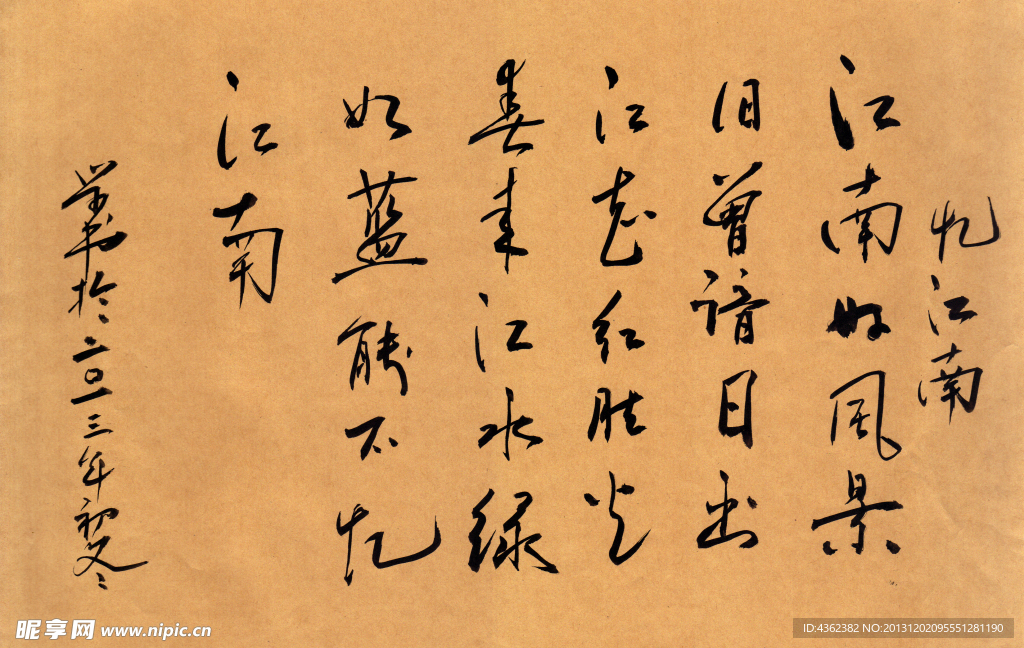 忆江南
江南好风景
旧曾谙日出
江花红胜火
春来江水绿
如蓝能不忆
江南
书於二〇一三年初冬
昵享网 www.nipic.cn
ID:4362382 NO:20131202095551281190